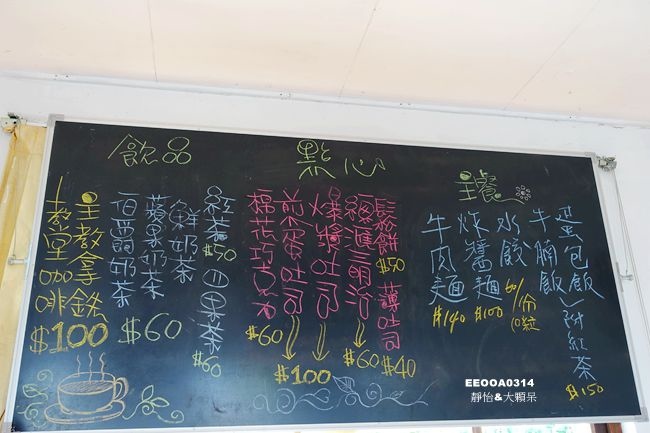 飲品
紅茶$50
四果茶$60
鮮奶茶
蘋果奶茶
伯爵奶茶
$60
咖啡
$100
點心
鬆餅$50
薄吐司$40
總匯三明治$60
爆漿吐司
煎蛋吐司
$100
棉花巧克力$60
主餐
蛋包飯
牛腩飯
附紅茶$150
水餃60/份10粒
炸醬麵$100
牛肉麵$140
EEOOA0314
靜怡&大顆呆